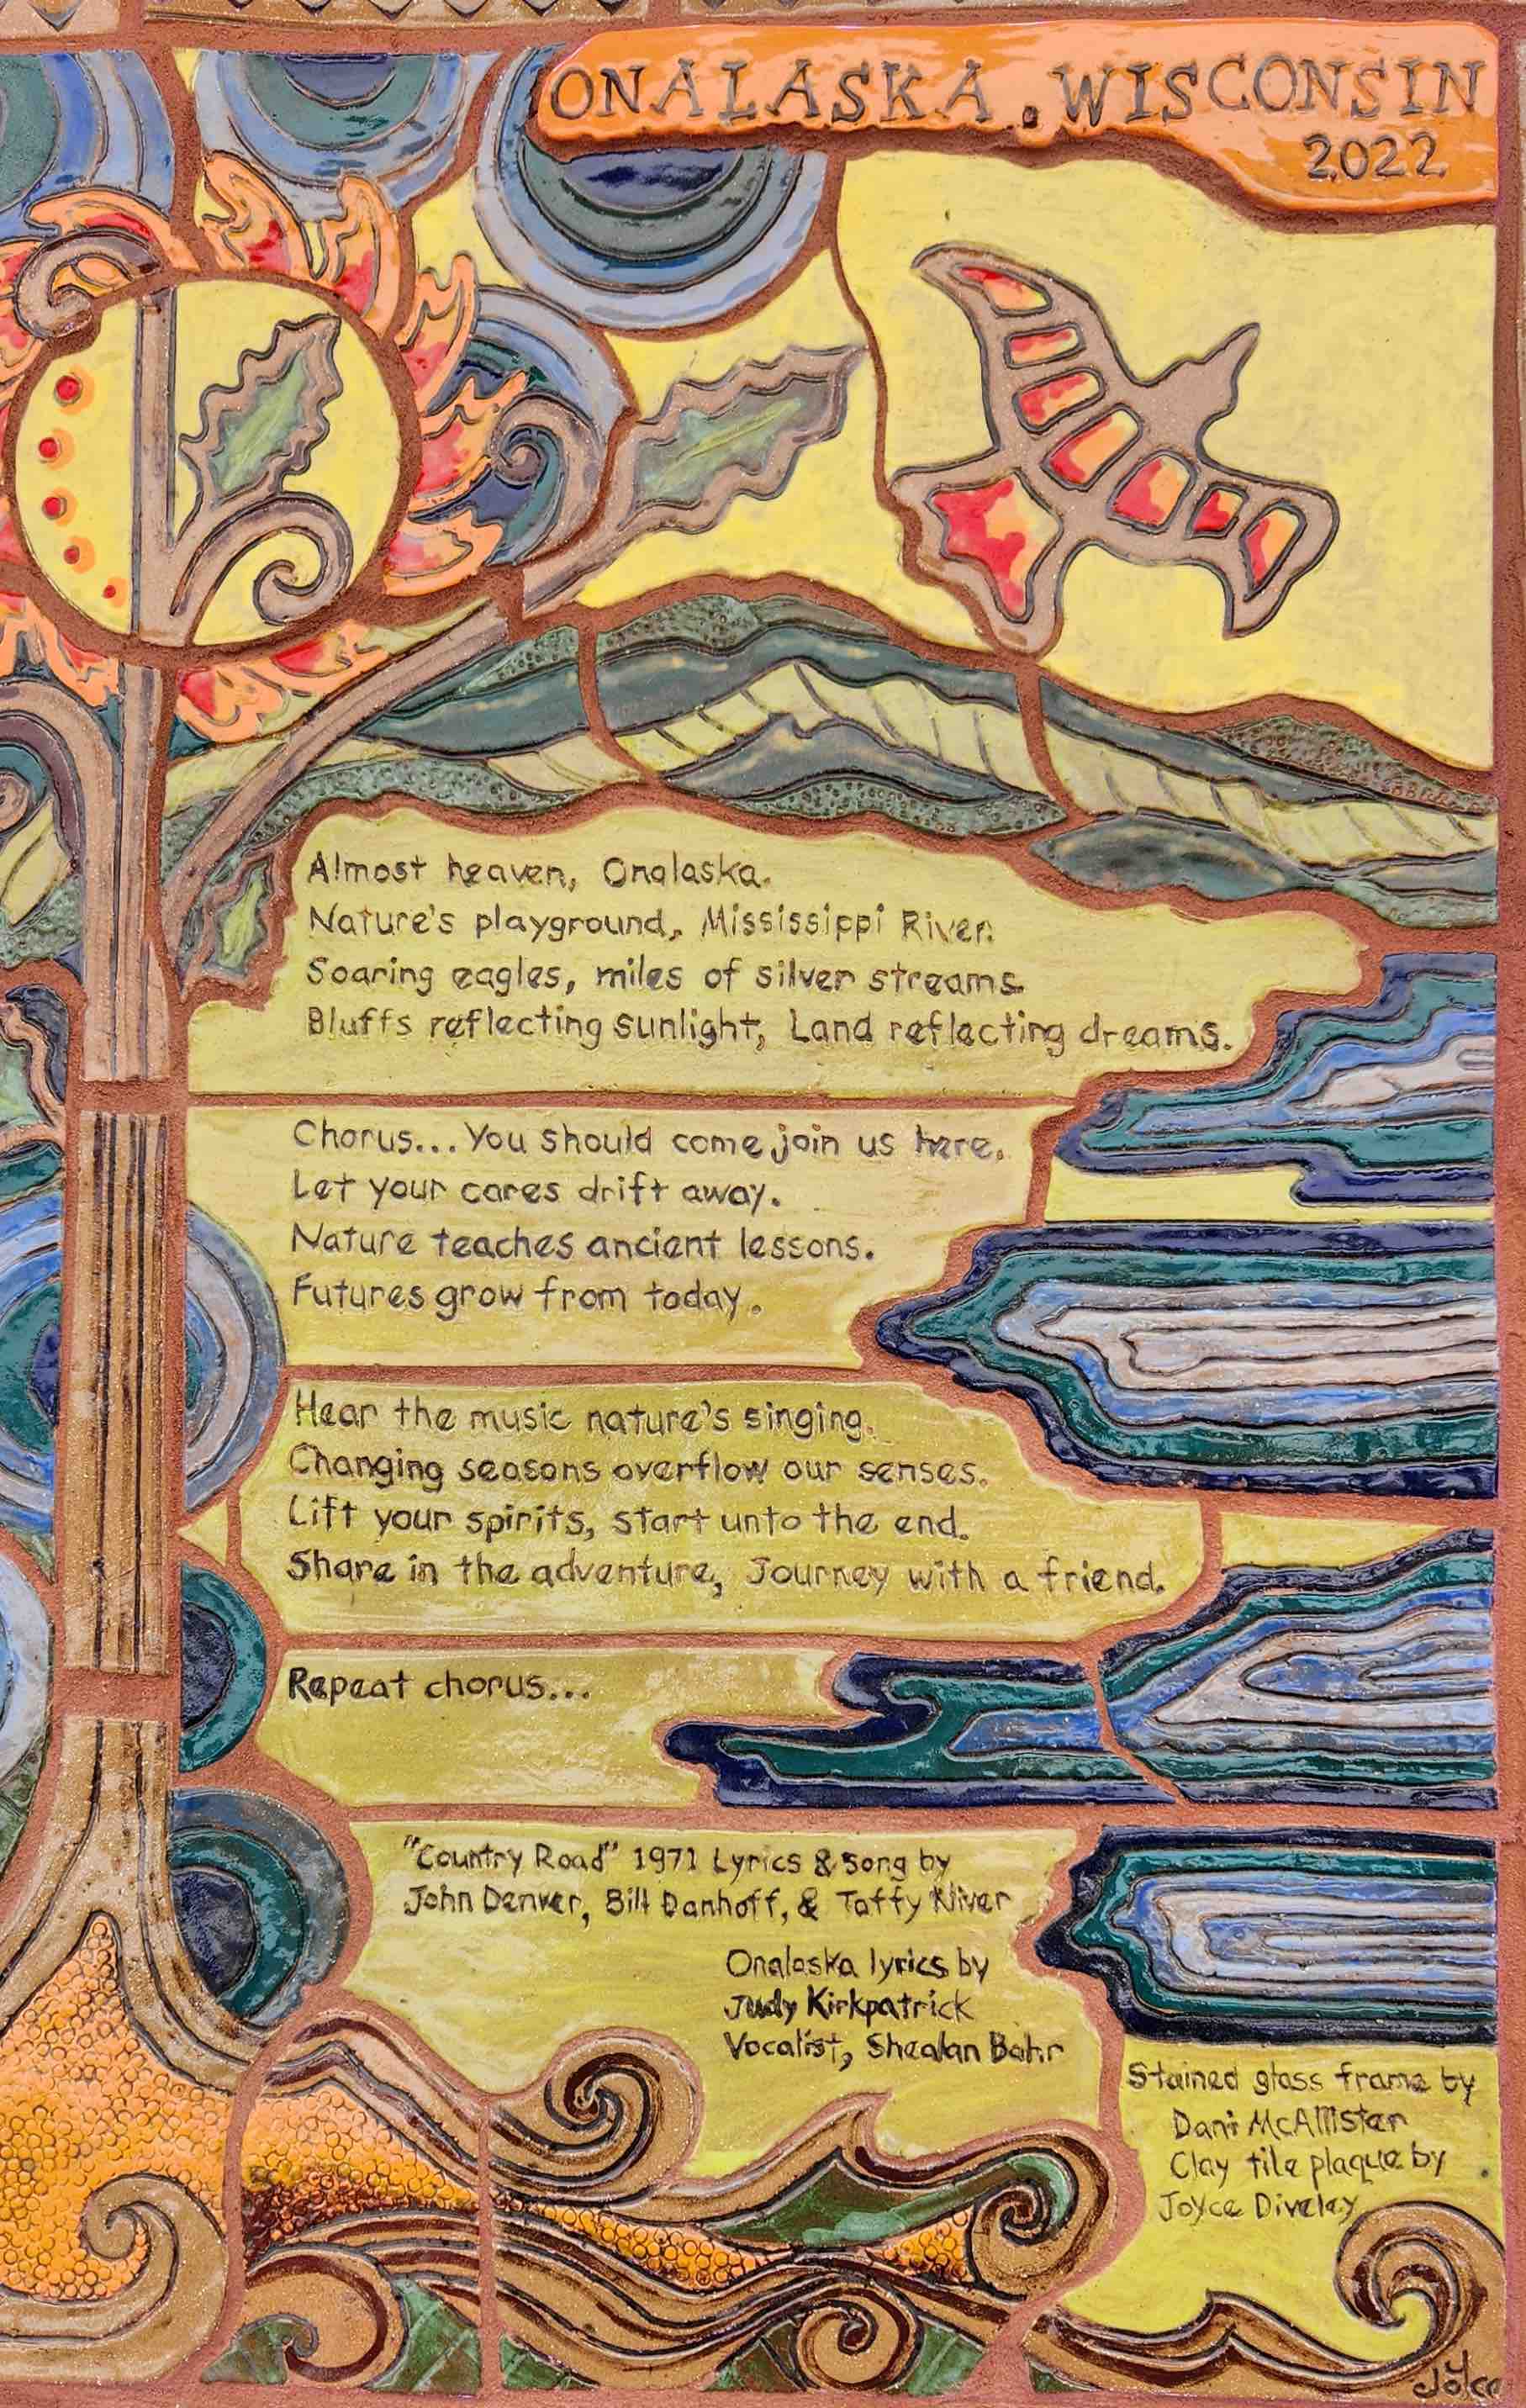 ONALASKA. WISCONSIN
2022
Almost heaven, Onalaska.
Nature's playground, Mississippi River.
Soaring eagles, miles of silver streams.
Bluffs reflecting sunlight, Land reflecting dreams.
Chorus... You should come join us here.
Let your cares drift away.
Nature teaches ancient lessons.
Futures grow from today.
Hear the music nature's singing.
Changing seasons overflow our senses.
Lift your spirits, start unto the end.
Share in the adventure, Journey with a friend.
Repeat chorus...
"Country Road" 1971 Lyrics & song by
John Denver, Bill Danhoff, & Taffy Niver
Onalaska lyrics by
Judy Kirkpatrick
Vocalist, Shealan Bahr
Stained glass frame by
Dani McAllister
Clay tile plaque by
Joyce Diveley
Joyce